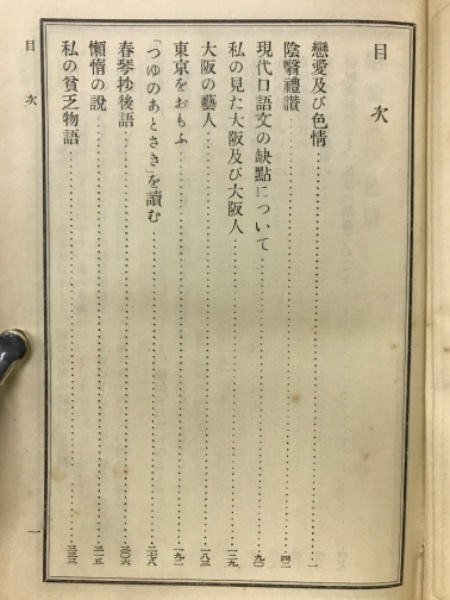 目次
戀愛及び色情 一
陰翳禮讚 四二
現代口語文の缺點について 九〇
私の見た大阪及び大阪人 一二九
大阪の藝人 一八三
東京をおもふ 一九二
「つゆのあとさき」を讀む 二七八
春琴抄後語 三〇六
懶惰の說 三一五
私の貧乏物語 三三三
目次
一